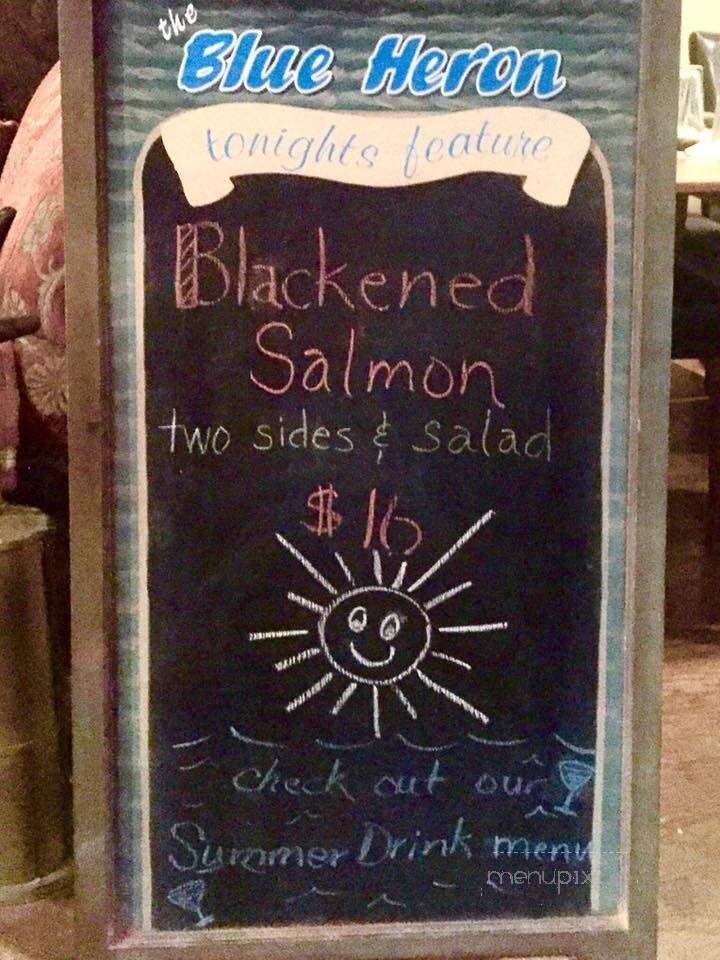 the
Blue Heron
tonights feature
Blackened
Salmon
two sides & salad
$16
check out our
Summer Drink menu
menupix